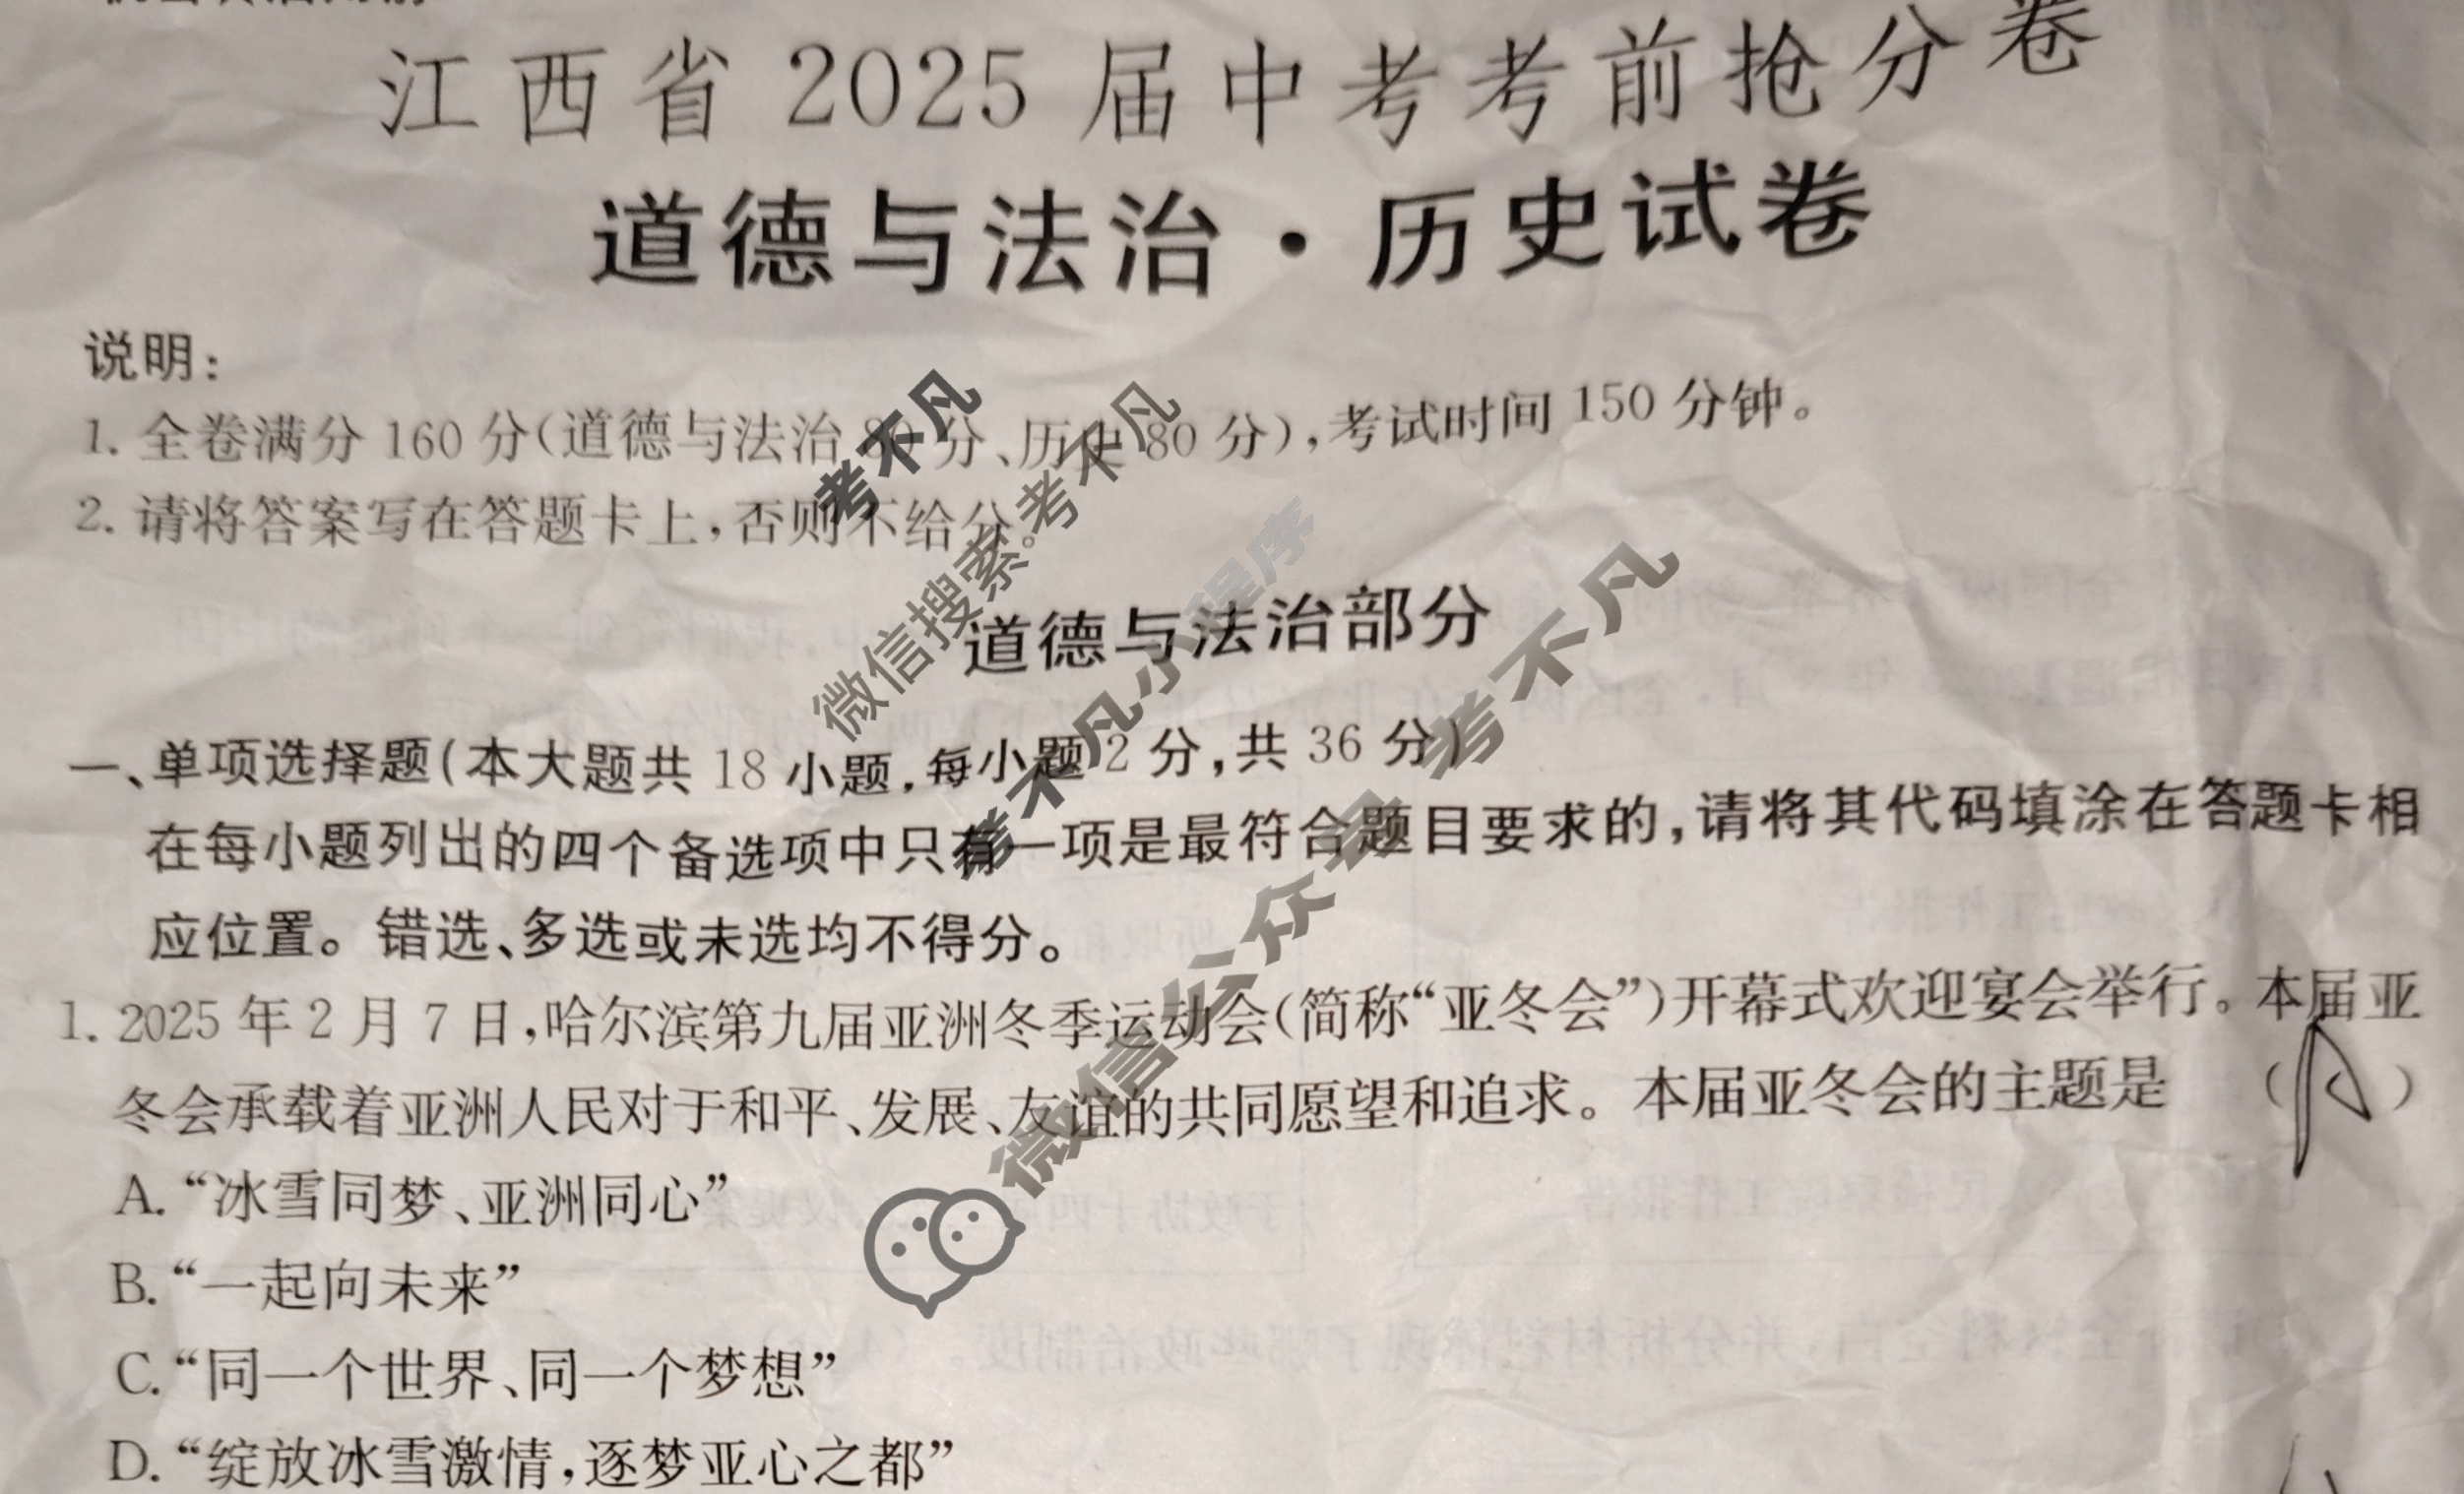 江西省2025届中考考前抢分卷
道德与法治·历史试卷
说明：
1. 全卷满分160分(道德与法治80分、历史80分)，考试时间150分钟。
2. 请将答案写在答题卡上，否则不给分。
道德与法治部分
一、单项选择题(本大题共18小题，每小题2分，共36分)
在每小题列出的四个备选项中只有一项是最符合题目要求的，请将其代码填涂在答题卡相
应位置。错选、多选或未选均不得分。
1. 2025年2月7日，哈尔滨第九届亚洲冬季运动会(简称“亚冬会”)开幕式欢迎宴会举行。本届亚
冬会承载着亚洲人民对于和平、发展、友谊的共同愿望和追求。本届亚冬会的主题是 ( )
A. “冰雪同梦、亚洲同心”
B. “一起向未来”
C. “同一个世界、同一个梦想”
D. “绽放冰雪激情，逐梦亚心之都”
考不凡
微信搜索:考不凡
考不凡小程序
微信公众号 考不凡